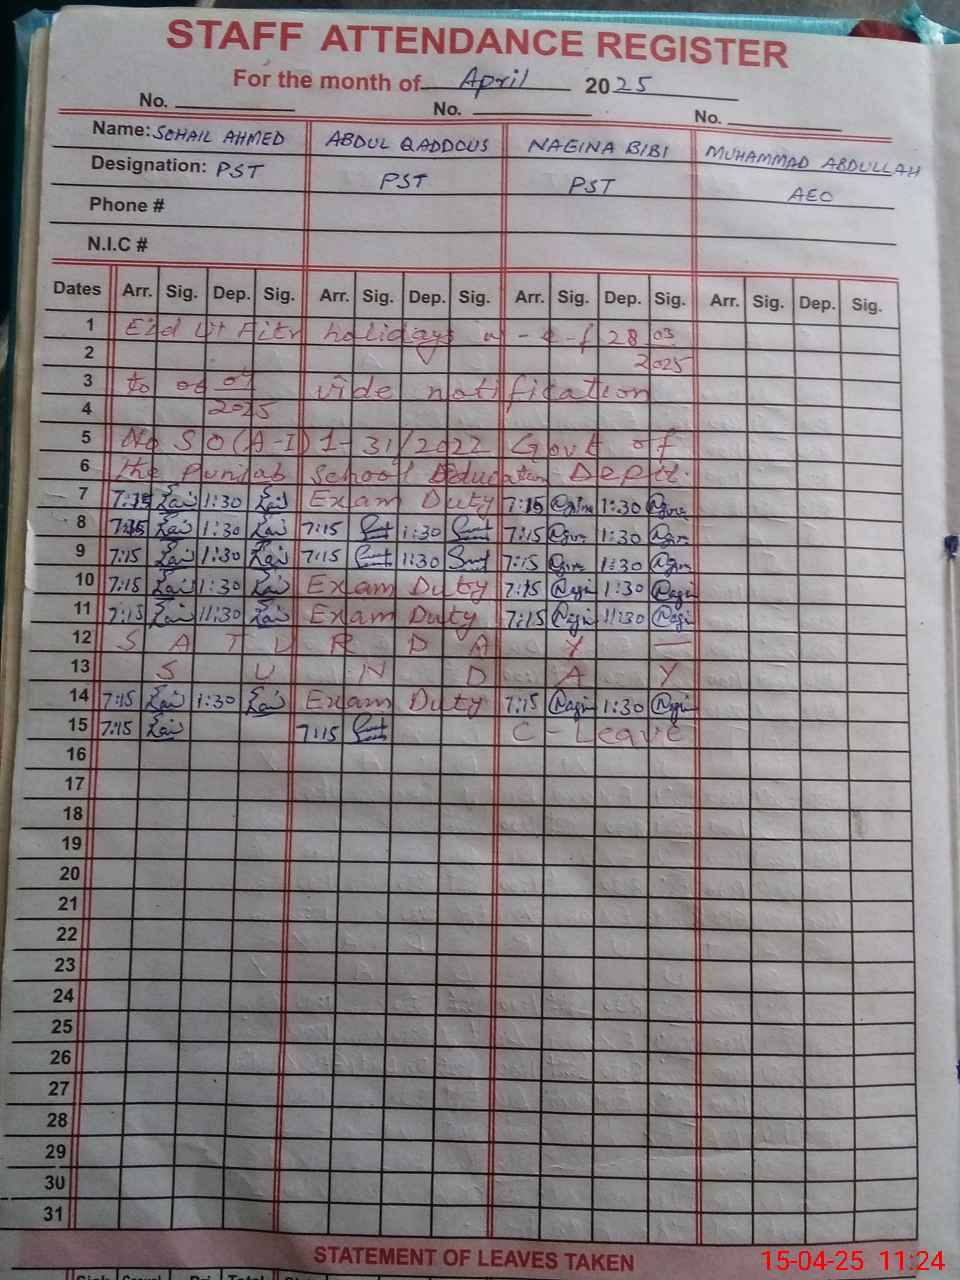 STAFF ATTENDANCE REGISTER
For the month of April 2025
No. No. No.
Name: SOHAIL AHMED ABDUL QADDOUS NAGINA BIBI MUHAMMAD ABDULLAH
Designation: PST PST PST AEO
Phone #
N.I.C #
Dates Arr. Sig. Dep. Sig. Arr. Sig. Dep. Sig. Arr. Sig. Dep. Sig. Arr. Sig. Dep. Sig.
1 Eid Ut Fitr holidays w-e-f 28 03
2 2025
3 to 06 04 vide notification
4 2025
5 No SO(A-I) 1-31/2022 Govt of
6 the Punjab School Education Deptt:
7 7:15 1:30 Exam Duty 7:15 1:30
8 7:15 1:30 7:15 1:30 7:15 1:30
9 7:15 1:30 7:15 1:30 7:15 1:30
10 7:15 1:30 Exam Duty 7:15 1:30
11 7:15 11:30 Exam Duty 7:15 11:30
12 S A T U R D A Y —
13 S U N D A Y
14 7:15 1:30 Exam Duty 7:15 1:30
15 7:15 7:15 C-Leave
16
17
18
19
20
21
22
23
24
25
26
27
28
29
30
31
STATEMENT OF LEAVES TAKEN
15-04-25 11:24